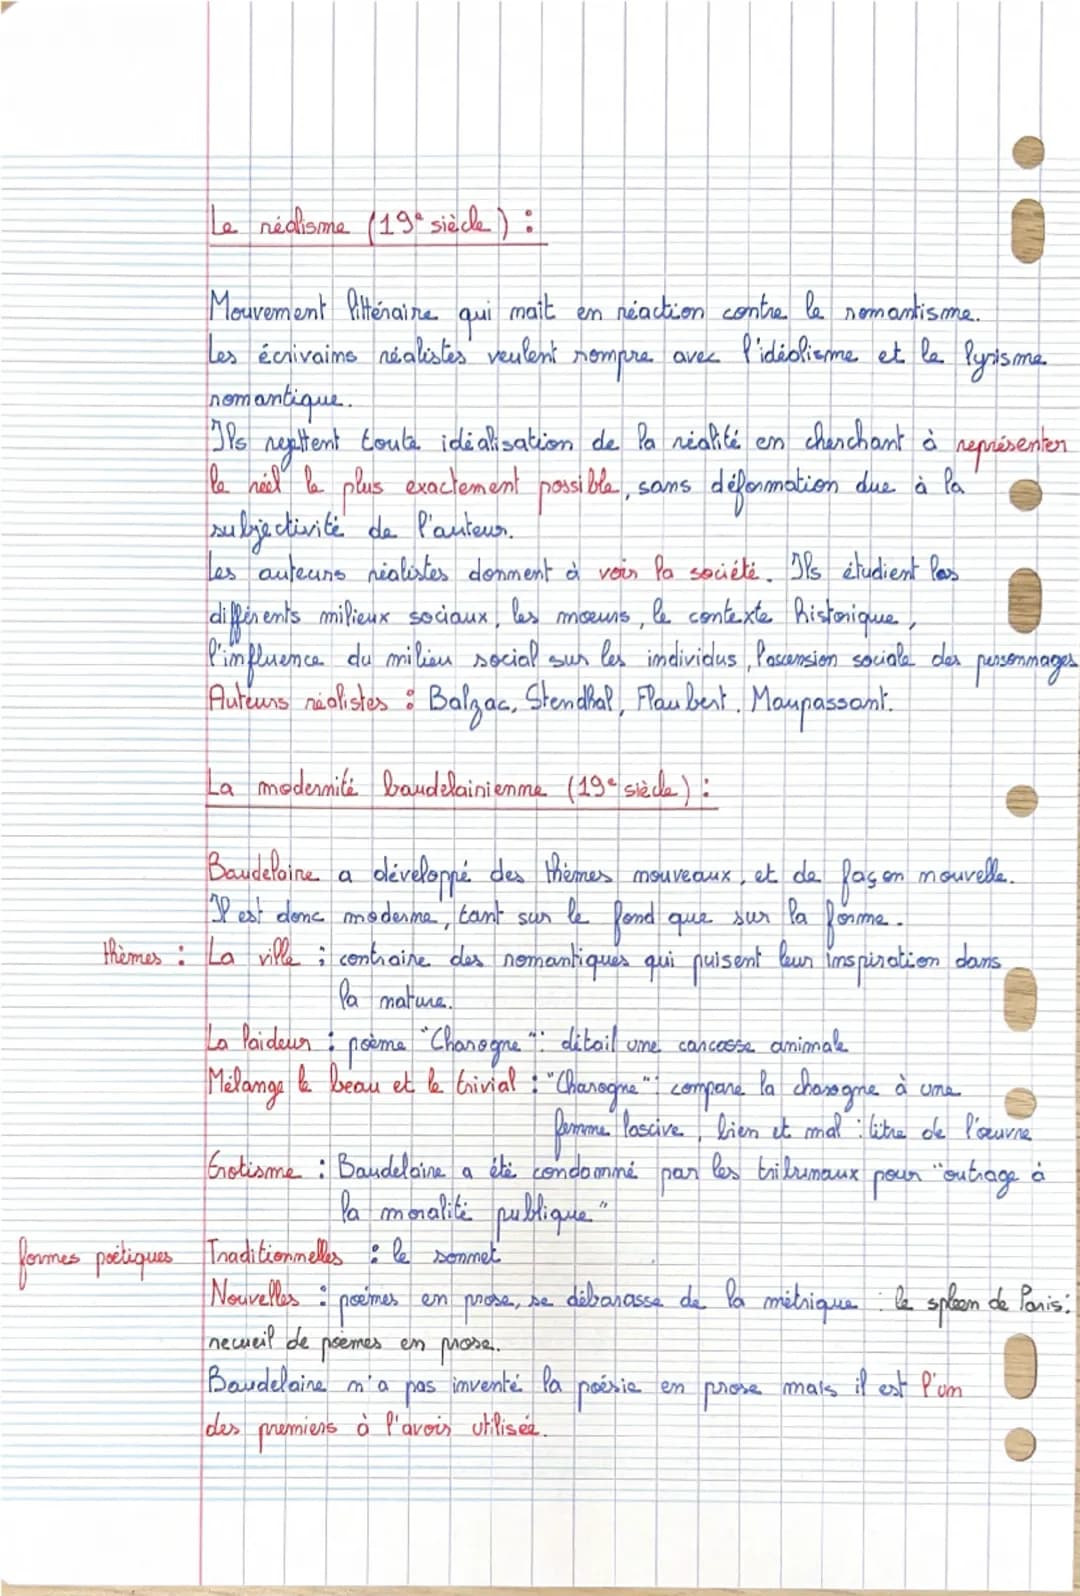 Le réalisme (19e siècle) :
Mouvement littéraire qui nait en réaction contre le romantisme.
Les écrivains réalistes veulent rompre avec l'idéalisme et le lyrisme
romantique.
Ils rejettent toute idéalisation de la réalité en cherchant à représenter
le réel le plus exactement possible, sans déformation due à la
subjectivité de l'auteur.
Les auteurs réalistes donnent à voir la société. Ils étudient les
différents milieux sociaux, les mœurs, le contexte historique,
l'influence du milieu social sur les individus, l'ascension sociale des personnages
Auteurs réalistes : Balzac, Stendhal, Flaubert, Maupassant.
La modernité baudelairienne (19e siècle) :
Baudelaire a développé des thèmes nouveaux, et de façon nouvelle.
Il est donc moderne, tant sur le fond que sur la forme.
thèmes : La ville : contraire des romantiques qui puisent leur inspiration dans
la nature.
La laideur : poème "Charogne" : détail une carcasse animale
Mélange le beau et le trivial : "Charogne" : compare la charogne à une
femme lascive, bien et mal : titre de l'œuvre
Erotisme : Baudelaire a été condamné par les tribunaux pour "outrage à
la moralité publique"
formes poétiques Traditionnelles : le sonnet
Nouvelles : poèmes en prose, se débarasse de la métrique : le spleen de Paris :
recueil de poèmes en prose.
Baudelaire n'a pas inventé la poésie en prose mais il est l'un
des premiers à l'avoir utilisée.